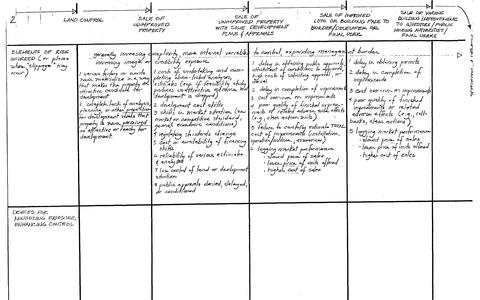 2
LAND CONTROL
SALE OF
UNIMPROVED
PROPERTY
SALE OF
UNIMPROVED PROPERTY
WITH SOME DEVELOPMENT
PLANS / APPROVALS
SALE OF IMPROVED
LOTS OR BUILDING PADS TO
BUILDER/DEVELOPER OR
FINAL USER
SALE OF
BUILDING IMPROVEMENTS
TO INVESTORS / PUBLIC
HOUSING AUTHORITIES /
FINAL USERS
ELEMENTS OF RISK
INCURRED (or places
where "slippage" may
occur)
generally increasing complexity, more internal variables to control, expanding management burden
increasing length or
credibility exposure
1 various
that makes the property
attractive candidate for
development
2 complete lack of analysis,
planning, or other preparation
for development
property
effective or ready for
development
1 costs of undertaking and
pleting
studies (esp. if feasibility study
produces
development is dropped)
2 development cost shifts
3 shifts in market situation (new
market or competitive standard,
general economic conditions)
4 regulatory standards change
5 cost or availability of financing
shifts
6 reliability of various estimates
& analyses
7 loss of control of land or development
situation
8 public approvals denied, delayed,
or conditioned
1 delay in obtaining public approvals,
attachment of conditions to approvals,
high costs of obtaining approvals, or
denial
2 delay in completion of improvements
3 cost overrun on improvements
4 poor quality of finished
or related adverse effects
(e.g., class action suits)
5 failure to carefully estimate TOTAL
cost of improvements (installation,
operation/
6 lagging market performance
- slowed pace of sales
- lower price of units offered
- higher cost of sales
1 delay in obtaining permits
2 delay in completion of
improvements
3 cost overrun on improvements
4 poor quality of finished
improvements or related
adverse effects (e.g., call-
backs, class actions)
5 lagging market performance
- slowed pace of sales
- lower price of units offered
- higher cost of sales
DEVICES FOR
MINIMIZING EXPOSURE,
ENHANCING CONTROL